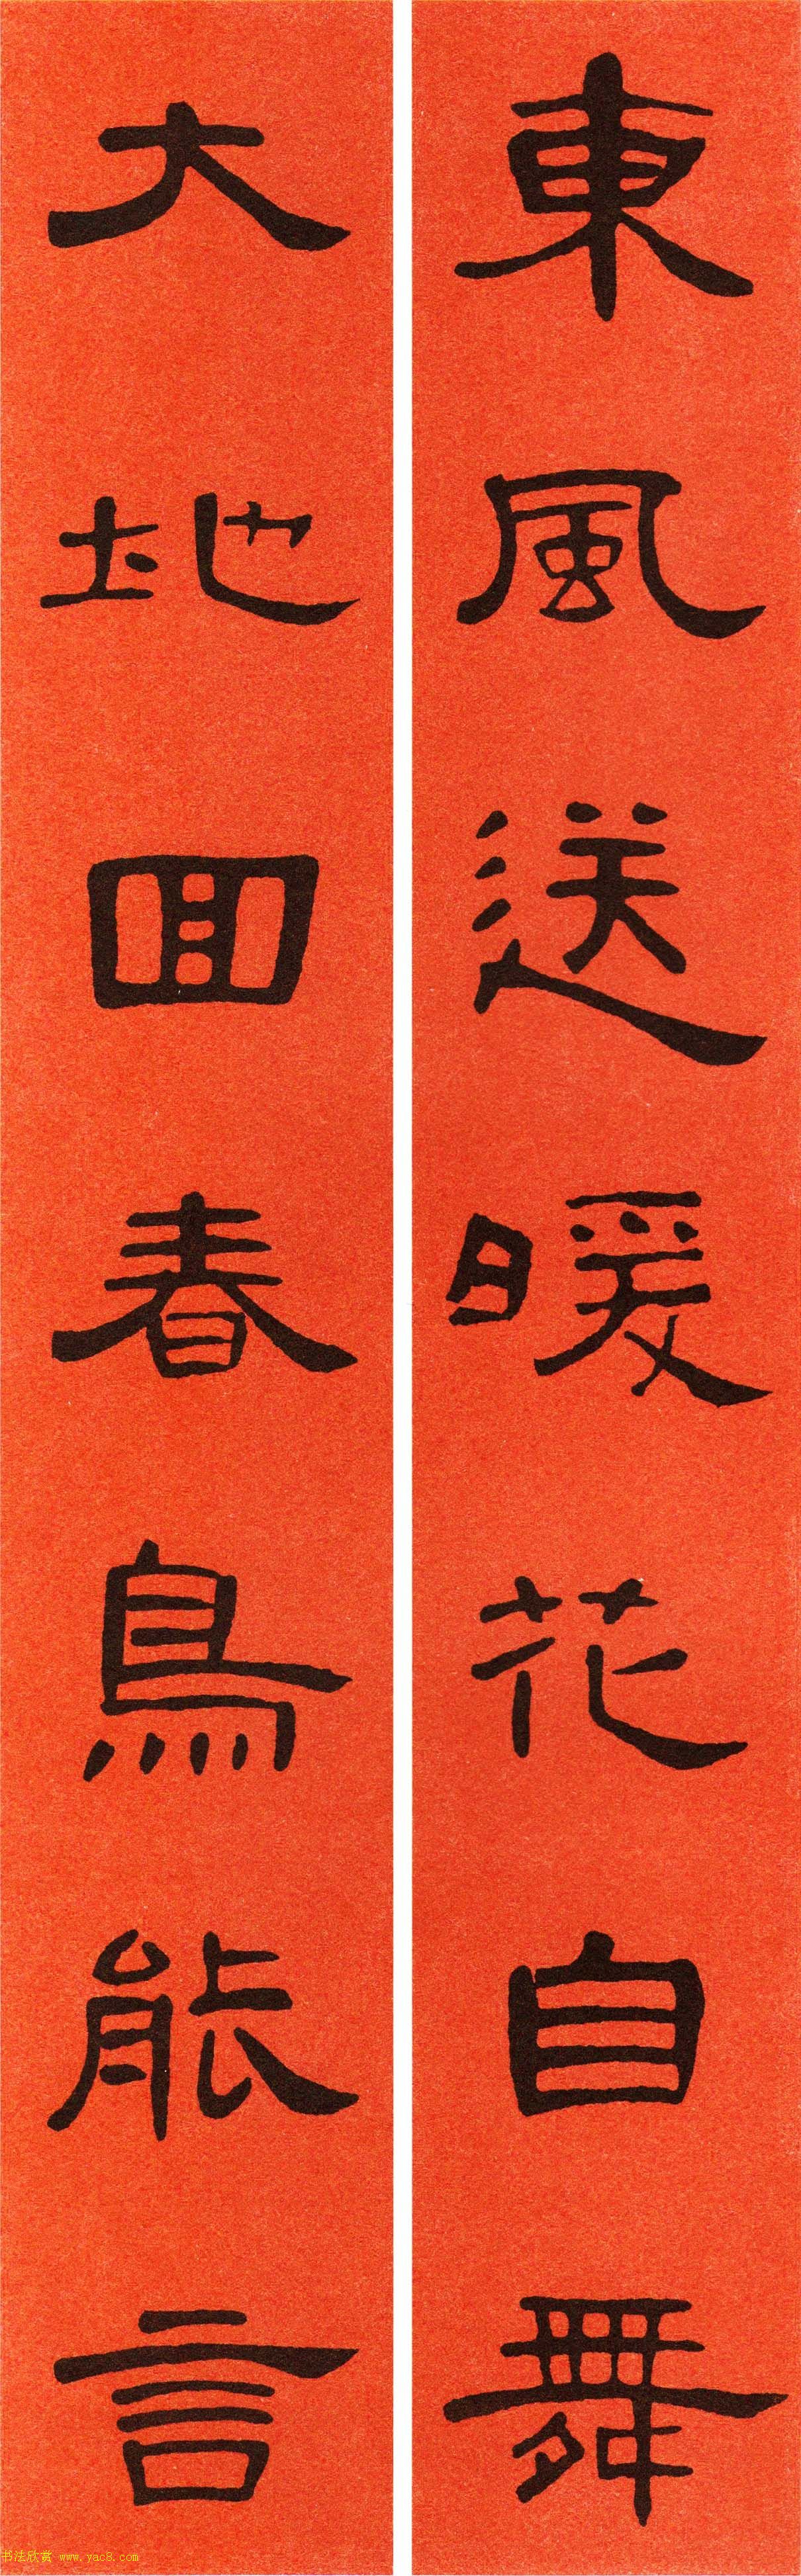 東風送暖花自舞
大地回春鳥能言
书法欣赏 www.yac8.com